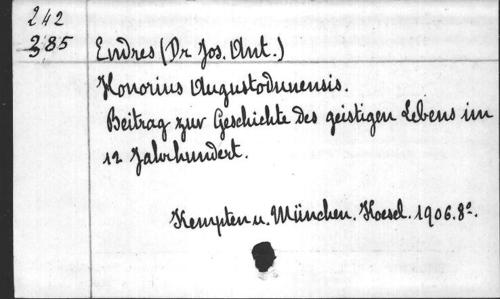 242
385
Endres (Dr Jos. Ant.)
Honorius Augustodunensis.
Beitrag zur Geschichte des geistigen Lebens im
12 Jahrhundert.
Kempten u. München. Koesel. 1906. 8°.